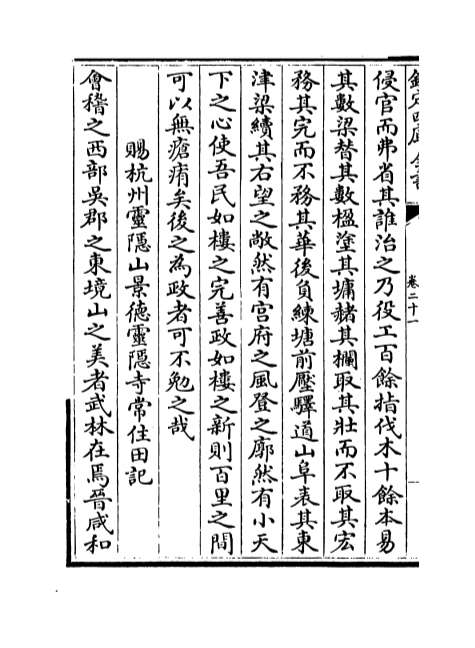 欽定四庫全書
卷二十一
侵官而弗省其誰治之乃役工百餘指伐木十餘本易
其數梁替其數楹塗其墉赭其欄取其壯而不取其宏
務其完而不務其華後負練塘前壓驛道山阜表其東
津梁續其右望之敞然有宫府之風登之廓然有小天
下之心使吾民如樓之完善政如樓之新則百里之間
可以無瘡痏矣後之為政者可不勉之哉
賜杭州靈隠山景德靈隠寺常住田記
會稽之西部吳郡之東境山之美者武林在焉晉咸和